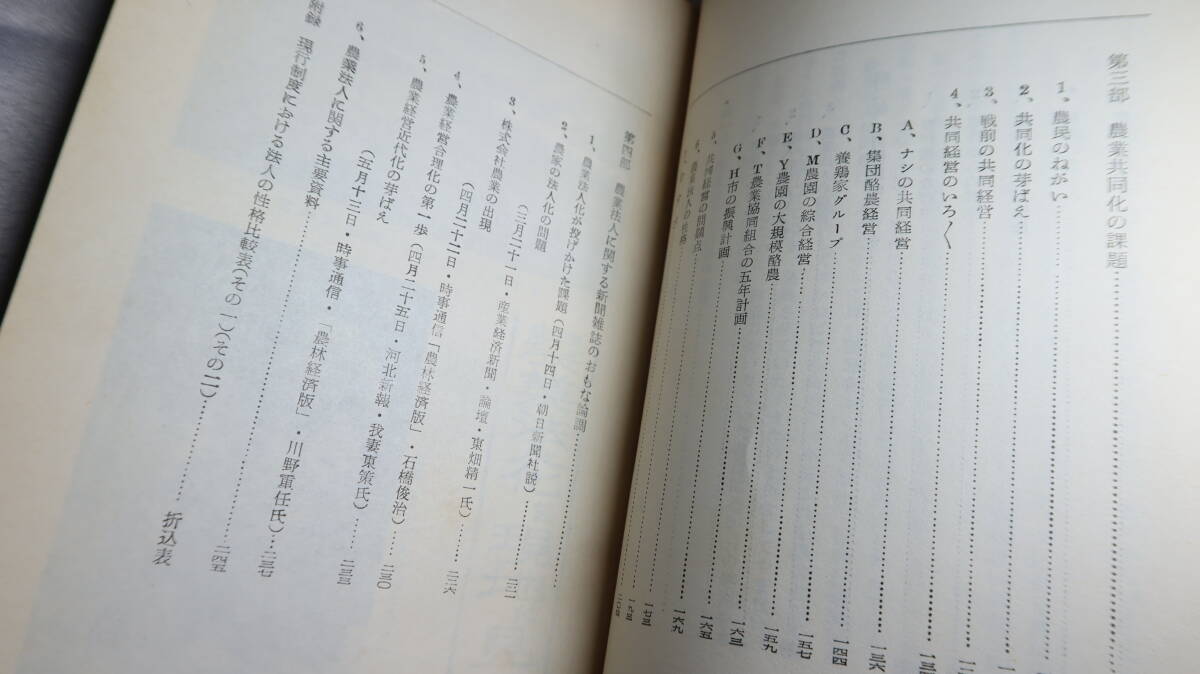 第三部 農業共同化の課題
1、農民のねがい
2、共同化の芽ばえ
3、戦前の共同経営
4、共同経営のいろ〱
A、ナシの共同経営
B、集団酪農経営 一三六
C、養鶏家グループ 一四四
D、M農園の綜合経営 一五七
E、Y農園の大規模酪農 一五九
F、T農業協同組合の五年計画 一六三
G、H市の振興計画 一六五
5、共同経営の問題点 一六九
6、農業法人の性格 一七三
第四部 農業法人に関する新聞雑誌のおもな論調
1、農業法人化が投げかけた課題(四月十四日・朝日新聞社説) 二二一
2、農家の法人化の問題
(三月二十一日・産業経済新聞・論壇・東畑精一氏) 二二六
3、株式会社農業の出現
(四月二十二日・時事通信「農林経済版」・石橋俊治) 二三〇
4、農業経営合理化の第一歩(四月二十五日・河北新報・我妻東策氏) 二三三
5、農業経営近代化の芽ばえ
(五月十三日・時事通信・「農林経済版」・川野重任氏) 二三七
6、農業法人に関する主要資料 二四五
附録 現行制度における法人の性格比較表(その一)(その二) 折込表